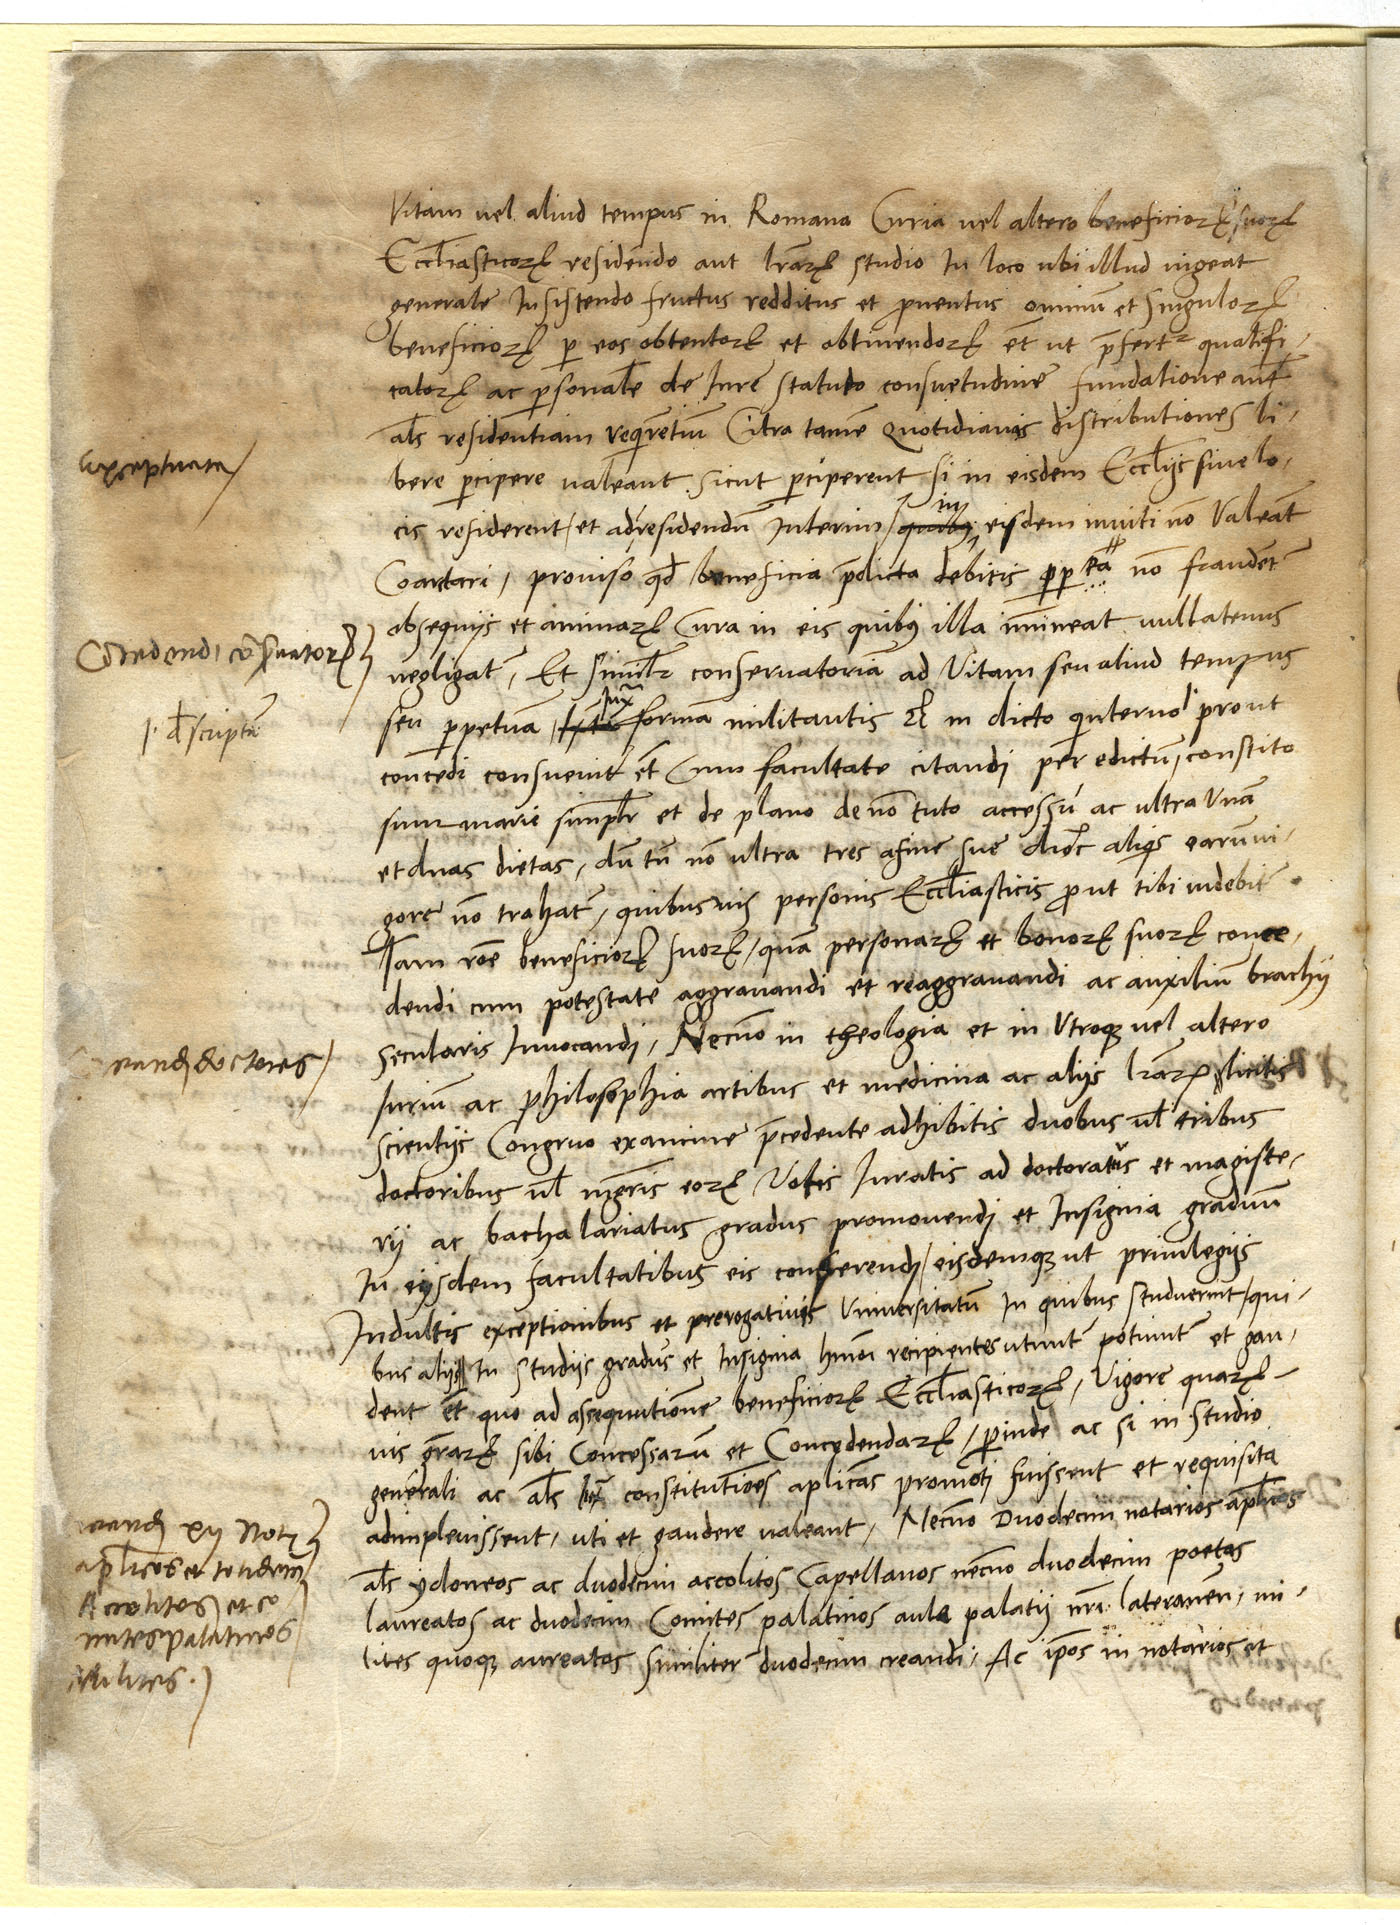 Vitam uel aliud tempus in Romana Curia uel altero beneficiorꝝ suorꝝ
Eccl̄iasticorꝝ residendo aut lr̄arꝝ studio In loco ubi illud uigeat
generale Insistendo fructus redditus et ꝓuentus omniū et singulorꝝ
beneficiorꝝ ꝑ eos obtentorꝝ et obtinendorꝝ et̄ ut p̄fertr qualifi-
catorꝝ ac ꝑsonale de Iure statuto consuetudine fundatione aut
al̄s residentiam req̄rentiū Citra tamē quotidianis distributiones li-
bere ꝑcipere ualeant sicut ꝑciperent si in eisdem Eccl̄iis siue lo-
cis residerent / et ad residendū Interim / in eisdem inuiti nō Valeāt
Coartari, prouiso qd̄ beneficia p̄dicta debitis ꝓꝑ ea nō fraudent̄
obsequiis et animarꝝ Cura in eis quibꝫ illa īmineat nullatenus
negligat̄, Et similr conseruatoriā ad Vitam seu aliud tempus
seu ꝑpetuā, Iux̄ formā militantis &c in dicto quinterno prout
concedi consueuit et̄ Cum facultate citandi per edictū, constito
summarie simplr et de plano de nō tuto accessu ac ultra Vnā
et duas dietas, dū tn̄ nō ultra tres a fine sue dioc̄ aliqs earū ui-
gore nō trahat̄, quibusuis personis Eccl̄iasticis ꝓut tibi uidebit̄
Tam rōe beneficiorꝝ suorꝝ, quā personarꝝ et bonorꝝ suorꝝ conce-
dendi cum potestate aggrauandi et reaggrauandi ac auxiliū brachij
secularis Inuocandi, Necnō in theologia et in Vtroqꝫ uel altero
Iuriū ac philosophia artibus et medicina ac alijs lr̄arꝝ licitis
scientijs Congruo examine p̄cedente adhibitis duobus ul̄ tribus
doctoribus ul̄ mgr̄is eorꝝ Votis Iuratis ad doctoratus et magiste-
rij ac bachalariatus gradus promouendj et Insignia graduū
In eijsdem facultatibus eis conferendj / eisdemqꝫ ut priuilegijs
Indultis exceptionibus et prerogatiuis Vniuersitatū In quibus studuerint / qui-
bus alijs In studijs gradus et Insignia hmōi recipientes utunt̄ potiunt̄ et gau-
dent et̄ quo ad assequutionē beneficiorꝝ Eccl̄iasticorꝝ, Vigore quarꝝ-
uis gr̄arꝝ sibi Concessarū et Concedendarꝝ, ꝑinde ac si in studio
generali ac al̄s iux̄ constitutiōes aplicas promoti fuissent et requisita
adimpleuissent, uti et gaudere ualeant, Necnō Duodecim notarios apl̄icos
al̄s ydoneos ac duodecim accolitos Capellanos necnō duodecim poetas
laureatos ac duodecim Comites palatinos aule palatij nr̄i lateranēn, mi-
lites quoqꝫ aureatos similiter duodecim creandi, Ac ip̄os in notarios et
Concedendi cōseruatorꝝ
p. descripta
doctores
xij Not
apl̄icos et totidem
Accolitos et co
mites palatinos
Milites.